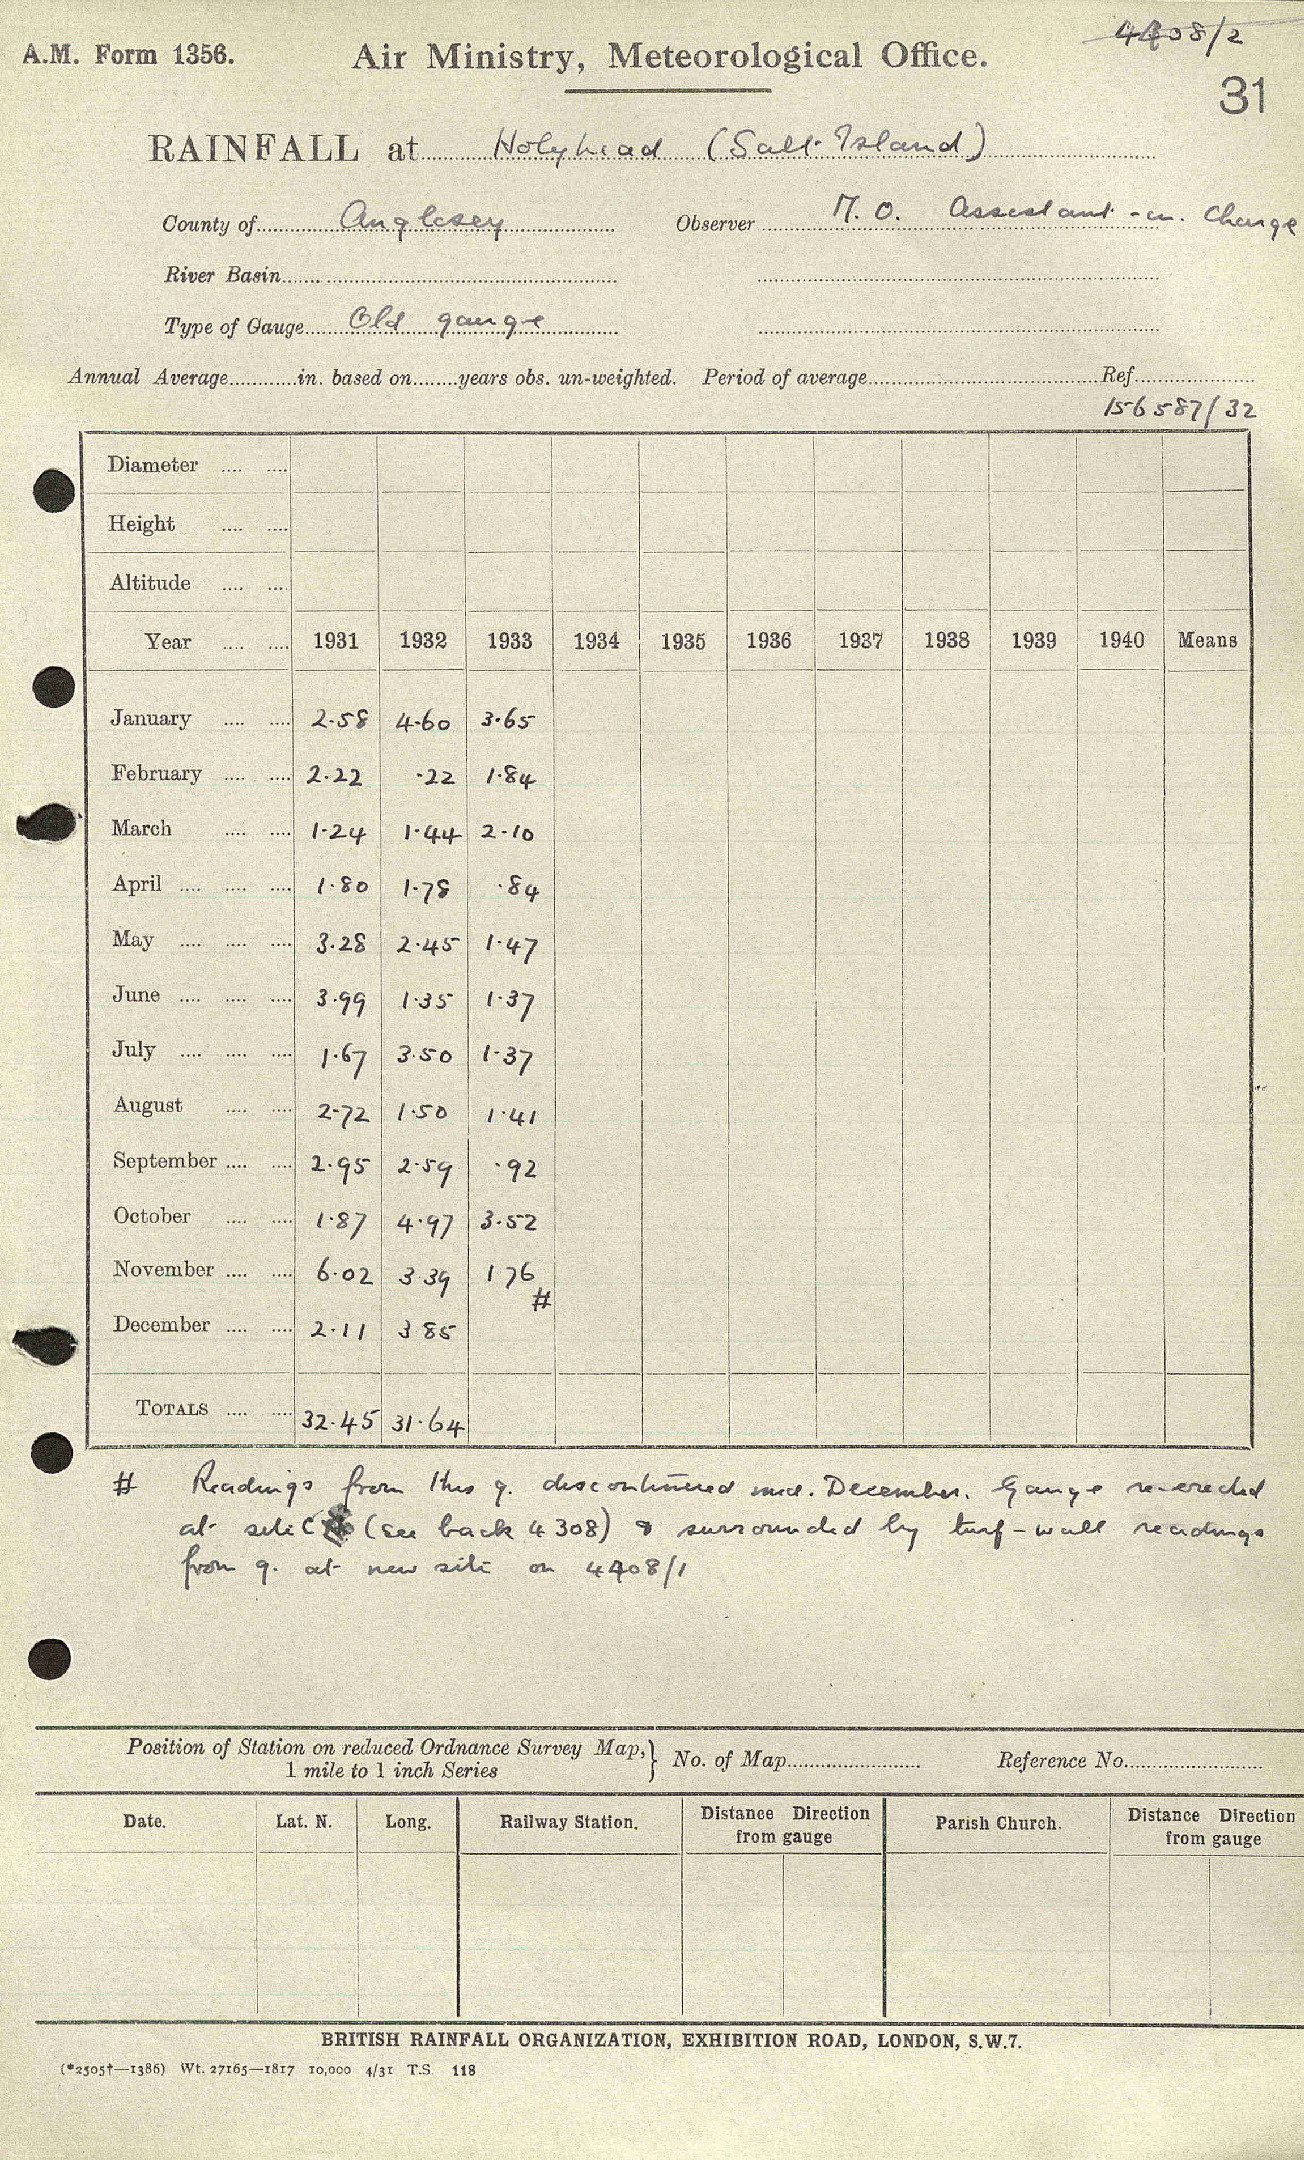 4408/2
A.M. Form 1356. Air Ministry, Meteorological Office.
31
RAINFALL at Holyhead (Salt Island)
County of Anglesey Observer M.O. Assistant-in-Charge
River Basin
Type of Gauge Old gauge
Annual Average in. based on years obs. un-weighted. Period of average Ref.
156587/32
Diameter
Height
Altitude
Year 1931 1932 1933 1934 1935 1936 1937 1938 1939 1940 Means
January 2.58 4.60 3.65
February 2.22 .22 1.84
March 1.24 1.44 2.10
April 1.80 1.78 .84
May 3.28 2.45 1.47
June 3.99 1.35 1.37
July 1.67 3.50 1.37
August 2.72 1.50 1.41
September 2.95 2.59 .92
October 1.87 4.97 3.52
November 6.02 3 39 1 76
#
December 2.11 3 85
TOTALS 32.45 31.64
# Readings from this g. discontinued mid. December. Gauge re-erected
at site C (see back 4308) & surrounded by turf-wall readings
from g. at new site on 4408/1
Position of Station on reduced Ordnance Survey Map, } No. of Map Reference No.
1 mile to 1 inch Series
Date. Lat. N. Long. Railway Station. Distance Direction Parish Church. Distance Direction
from gauge from gauge
BRITISH RAINFALL ORGANIZATION, EXHIBITION ROAD, LONDON, S.W.7.
(*2505†—1386) Wt. 27165—1817 10,000 4/31 T.S. 118